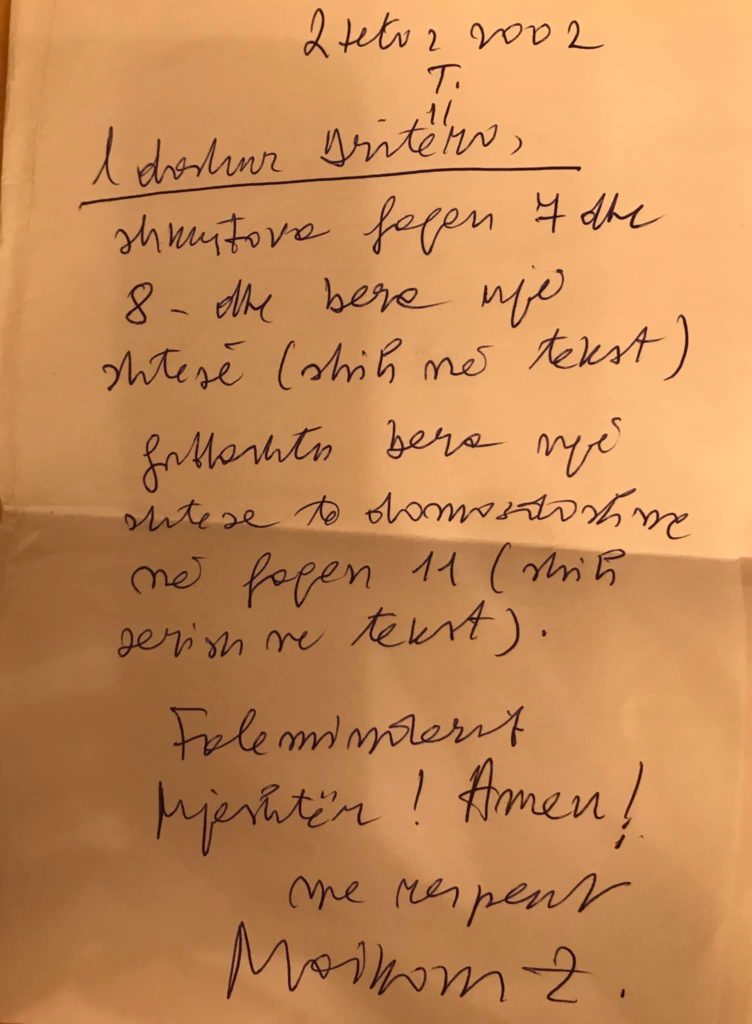 2 tetor 2002
T.
11
I dashur Dritëro,
shkurtova faqen 7 dhe
8 - dhe bera një
shtesë (shih në tekst)
gjithashtu bera një
shtese të domosdoshme
në faqen 11 (shih
serish ne tekst).
Faleminderit
Mjeshtër! Amen!
me respekt
Moikom Z.